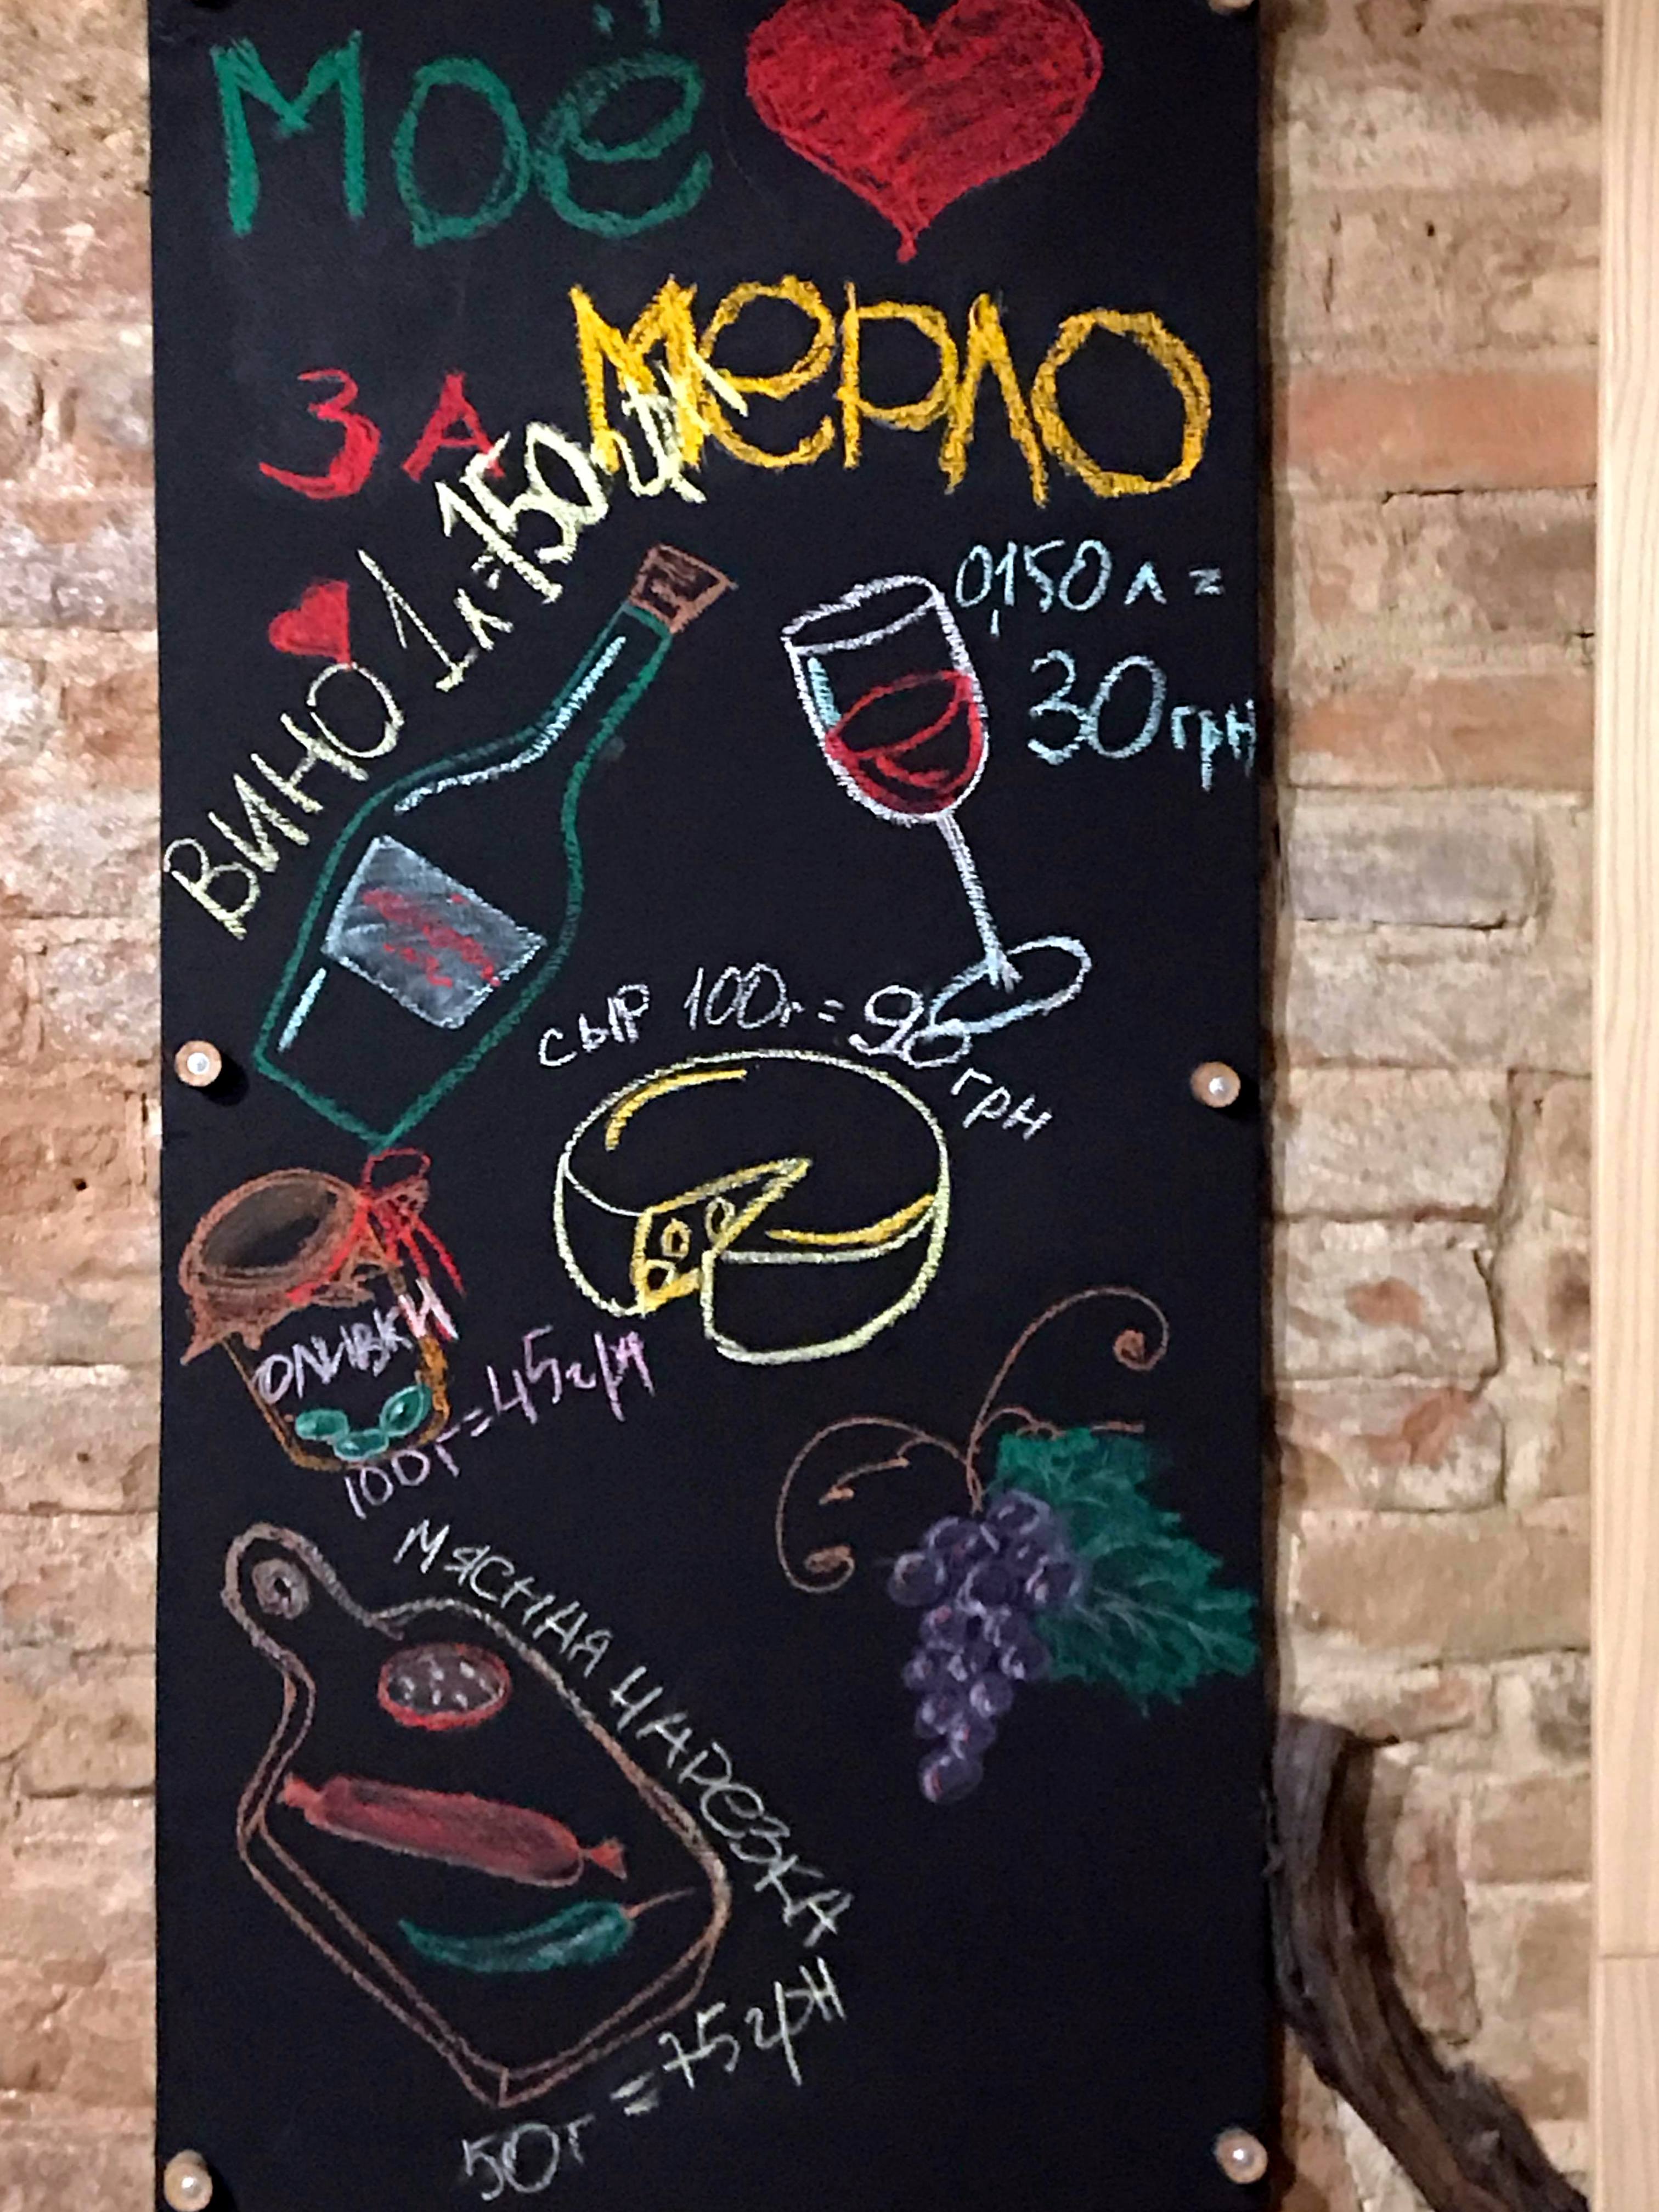 Моё
ЗА мерло
ВИНО 1л=150грн
0,150 л =
30грн
сыр 100г = 90 грн
оливки
100г=45грн
МЯСНАЯ НАРЕЗКА
50г = 75грн